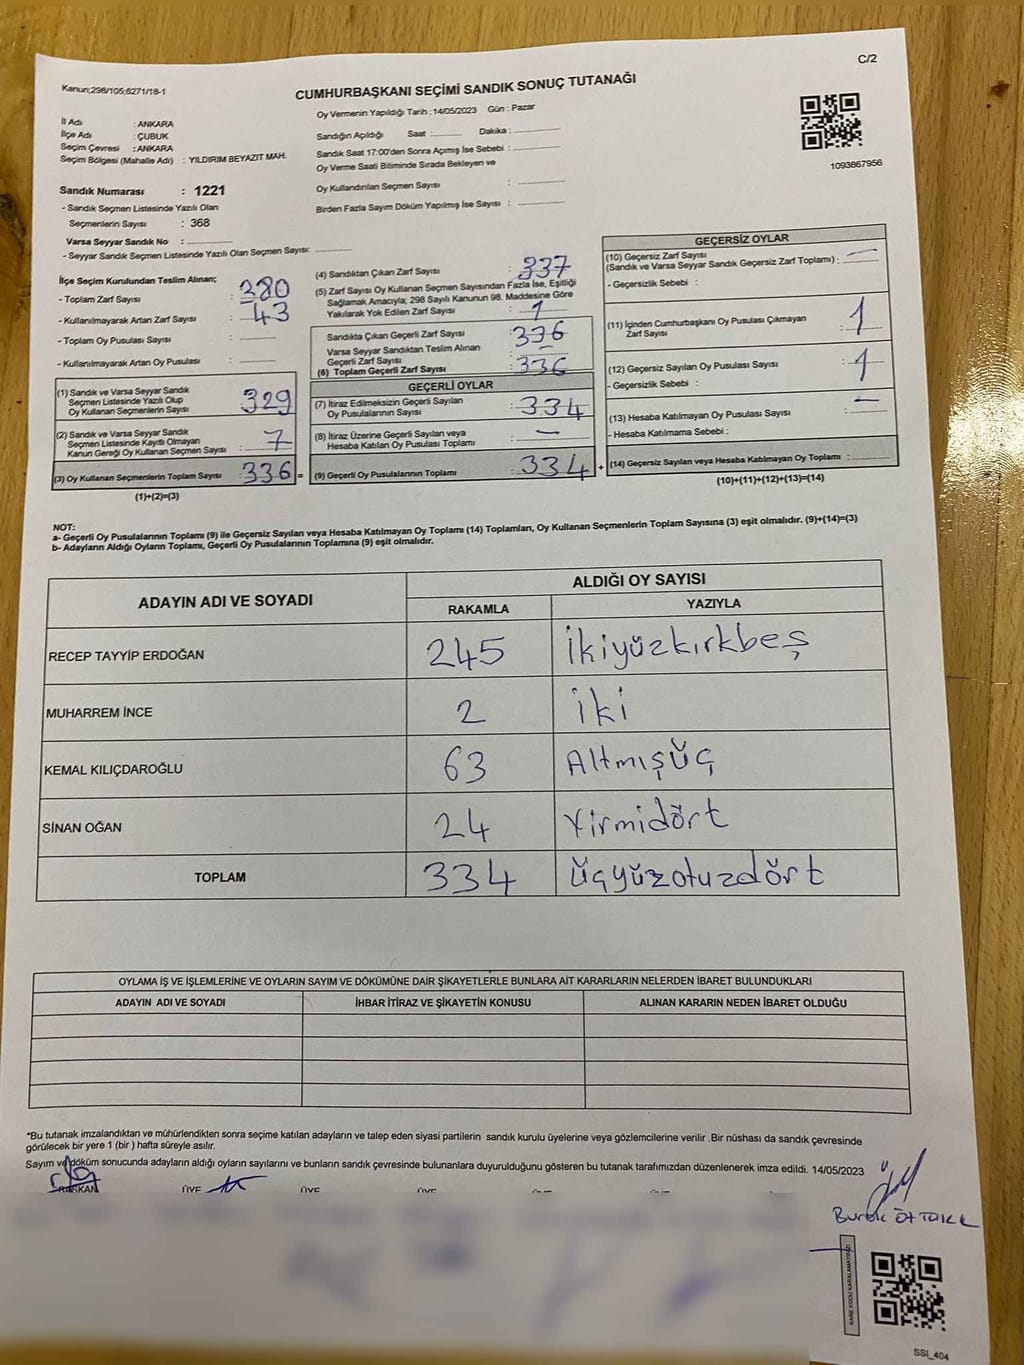 C/2
Kanun;298/105;6271/18-1
CUMHURBAŞKANI SEÇİMİ SANDIK SONUÇ TUTANAĞI
İl Adı : ANKARA
İlçe Adı : ÇUBUK
Seçim Çevresi : ANKARA
Seçim Bölgesi (Mahalle Adı) : YILDIRIM BEYAZIT MAH.
Oy Vermenin Yapıldığı Tarih :14/05/2023 Gün : Pazar
Sandığın Açıldığı Saat : Dakika :
Sandık Saat 17:00'den Sonra Açımış İse Sebebi :
Oy Verme Saati Bitiminde Sırada Bekleyen ve
Oy Kullandırılan Seçmen Sayısı :
Birden Fazla Sayım Döküm Yapılmış İse Sayısı :
1093867956
Sandık Numarası : 1221
- Sandık Seçmen Listesinde Yazılı Olan
Seçmenlerin Sayısı : 368
Varsa Seyyar Sandık No :
- Seyyar Sandık Seçmen Listesinde Yazılı Olan Seçmen Sayısı:
İlçe Seçim Kurulundan Teslim Alınan;
- Toplam Zarf Sayısı : 380
- Kullanılmayarak Artan Zarf Sayısı : 43
- Toplam Oy Pusulası Sayısı :
- Kullanılmayarak Artan Oy Pusulası :
(1) Sandık ve Varsa Seyyar Sandık
Seçmen Listesinde Yazılı Olup
Oy Kullanan Seçmenlerin Sayısı : 329
(2) Sandık ve Varsa Seyyar Sandık
Seçmen Listesinde Kayıtlı Olmayan
Kanun Gereği Oy Kullanan Seçmen Sayısı : 7
(3) Oy Kullanan Seçmenlerin Toplam Sayısı : 336 =
(1)+(2)=(3)
(4) Sandıktan Çıkan Zarf Sayısı : 337
(5) Zarf Sayısı Oy Kullanan Seçmen Sayısından Fazla İse, Eşitliği
Sağlamak Amacıyla; 298 Sayılı Kanunun 98. Maddesine Göre
Yakılarak Yok Edilen Zarf Sayısı : 1
Sandıkta Çıkan Geçerli Zarf Sayısı : 336
Varsa Seyyar Sandıktan Teslim Alınan
Geçerli Zarf Sayısı : –
(6) Toplam Geçerli Zarf Sayısı : 336
GEÇERLİ OYLAR
(7) İtiraz Edilmeksizin Geçerli Sayılan
Oy Pusulalarının Sayısı : 334
(8) İtiraz Üzerine Geçerli Sayılan veya
Hesaba Katılan Oy Pusulası Toplamı : –
(9) Geçerli Oy Pusulalarının Toplamı : 334 +
GEÇERSİZ OYLAR
(10) Geçersiz Zarf Sayısı
(Sandık ve Varsa Seyyar Sandık Geçersiz Zarf Toplamı) : –
- Geçersizlik Sebebi :
(11) İçinden Cumhurbaşkanı Oy Pusulası Çıkmayan
Zarf Sayısı : 1
(12) Geçersiz Sayılan Oy Pusulası Sayısı : 1
- Geçersizlik Sebebi :
(13) Hesaba Katılmayan Oy Pusulası Sayısı : –
- Hesaba Katılmama Sebebi :
(14) Geçersiz Sayılan veya Hesaba Katılmayan Oy Toplamı :
(10)+(11)+(12)+(13)=(14)
NOT:
a- Geçerli Oy Pusulalarının Toplamı (9) ile Geçersiz Sayılan veya Hesaba Katılmayan Oy Toplamı (14) Toplamları, Oy Kullanan Seçmenlerin Toplam Sayısına (3) eşit olmalıdır. (9)+(14)=(3)
b- Adayların Aldığı Oyların Toplamı, Geçerli Oy Pusulalarının Toplamına (9) eşit olmalıdır.
ADAYIN ADI VE SOYADI ALDIĞI OY SAYISI
RAKAMLA YAZIYLA
RECEP TAYYİP ERDOĞAN 245 İkiyüzkırkbeş
MUHARREM İNCE 2 iki
KEMAL KILIÇDAROĞLU 63 Altmışüç
SİNAN OĞAN 24 Yirmidört
TOPLAM 334 üçyüzotuzdört
OYLAMA İŞ VE İŞLEMLERİNE VE OYLARIN SAYIM VE DÖKÜMÜNE DAİR ŞİKAYETLERLE BUNLARA AİT KARARLARIN NELERDEN İBARET BULUNDUKLARI
ADAYIN ADI VE SOYADI İHBAR İTİRAZ VE ŞİKAYETİN KONUSU ALINAN KARARIN NEDEN İBARET OLDUĞU
*Bu tutanak imzalandıktan ve mühürlendikten sonra seçime katılan adayların ve talep eden siyasi partilerin sandık kurulu üyelerine veya gözlemcilerine verilir .Bir nüshası da sandık çevresinde
görülecek bir yere 1 (bir ) hafta süreyle asılır.
Sayım ve döküm sonucunda adayların aldığı oyların sayılarını ve bunların sandık çevresinde bulunanlara duyurulduğunu gösteren bu tutanak tarafımızdan düzenlenerek imza edildi. 14/05/2023
BAŞKAN ÜYE ÜYE ÜYE ÜYE
KARE KODU KARALAMAYINIZ!
SSI_404